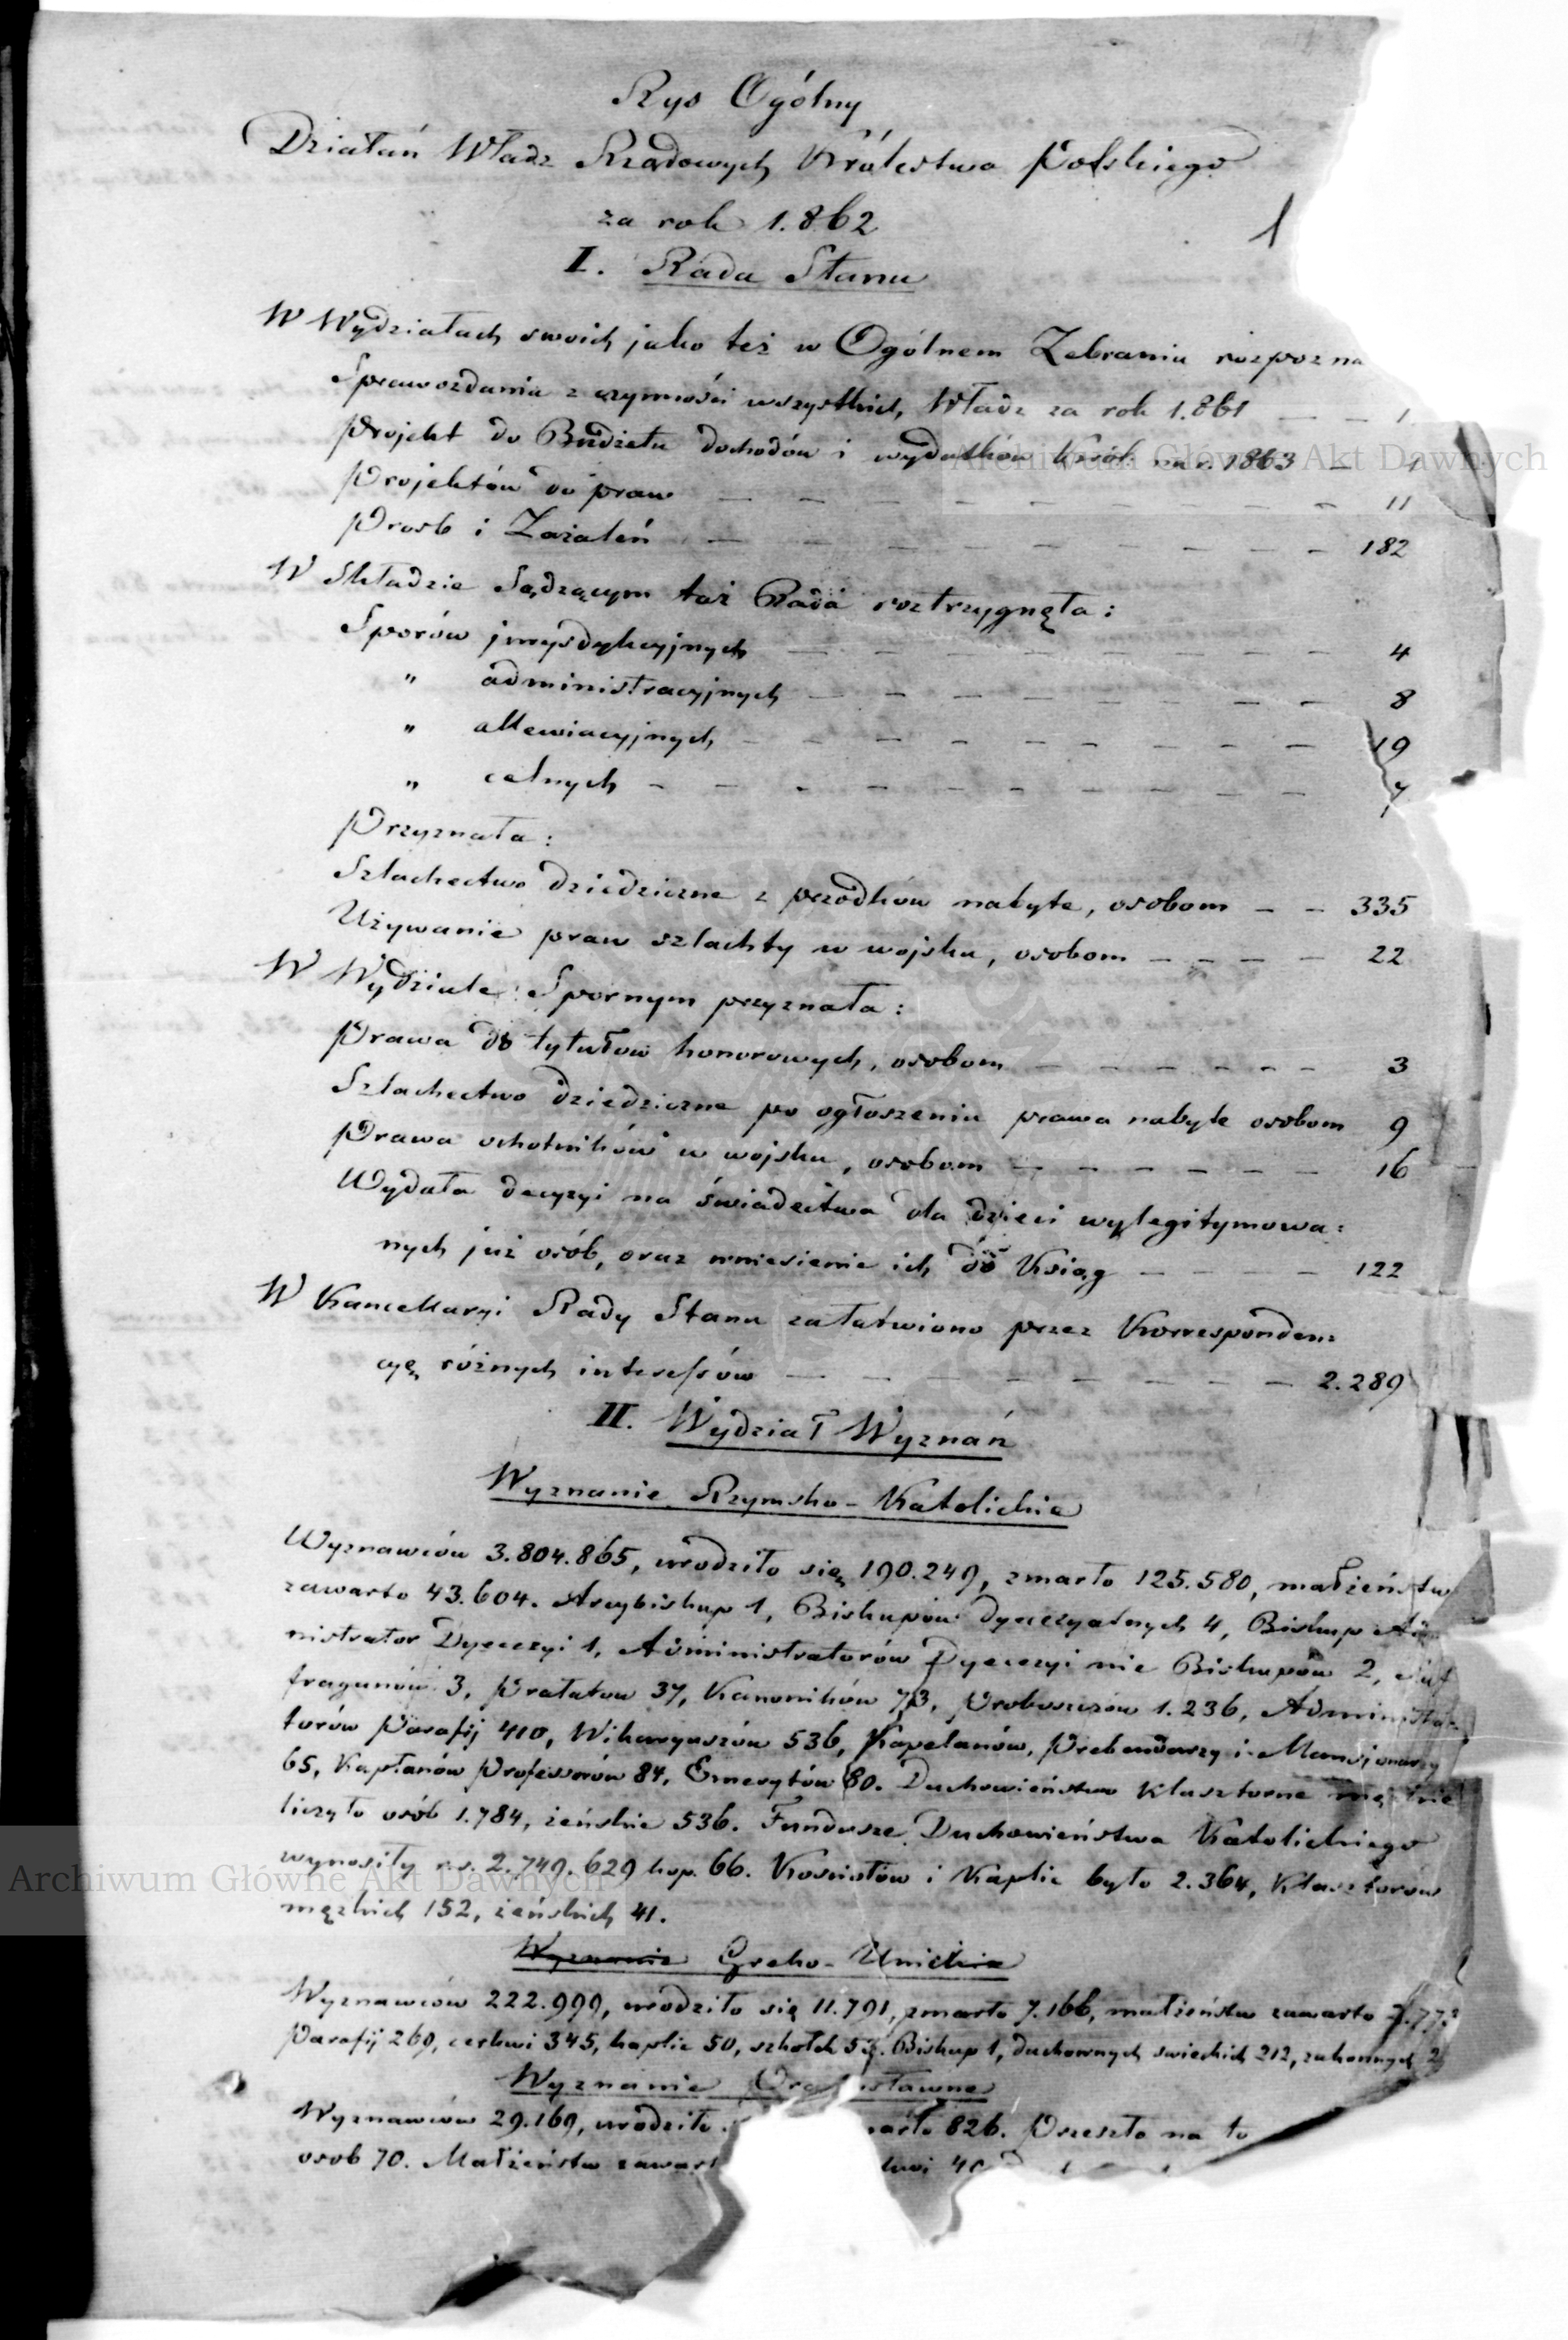 Rys Ogólny
Działań Władz Rządowych Królestwa Polskiego
za rok 1.862
1
I. Rada Stanu
W Wydziałach swoich jako też w Ogólnem Zebraniu rozpozna
Sprawozdania z czynności wszystkich Władz za rok 1.861 — — 1
Projekt do Budżetu dochodów i wydatków Król: na r. 1863 — 1
Projektów do praw — — — — — — — — — — 11
Prosb i Zażaleń — — — — — — — — — — 182
W Składzie Sądzącym taż Rada roztrzygnęła:
Sporów jurysdykcyjnych — — — — — — — — — 4
" administracyjnych — — — — — — — — 8
" allewiacyjnych — — — — — — — — — 19
" celnych — — — — — — — — — — 7
Przyznała:
Szlachectwo dziedziczne z przodków nabyte, osobom — — 335
Używanie praw szlachty w wojsku, osobom — — — — 22
W Wydziale Spornym przyznała:
Prawa do tytułow honorowych, osobom — — — — — — 3
Szlachectwo dziedziczne po ogłoszeniu prawa nabyte osobom 9
Prawa ochotników w wojsku, osobom — — — — — — 16
Wydała decyzyi na świadectwa dla dzieci wylegitymowa:
nych już osób, oraz wniesienie ich do Ksiąg — — — — 122
W Kancellaryi Rady Stanu załatwiono przez Korresponden:
cyę różnych interessów — — — — — — — — 2.289
II. Wydział Wyznań
Wyznanie Rzymsko-Katolickie
Wyznawców 3.804.865, urodziło się 190.249, zmarło 125.580, małżeństw
zawarto 43.604. Arcybiskup 1, Biskupów Dyecezyalnych 4, Biskup Admi
nistrator Dyecezyi 1, Administratorów Dyecezyi nie Biskupów 2, Suf
fraganów 3, Prałatow 37, Kanoników 73, Proboszczów 1.236, Administra:
torów Parafij 410, Wikaryuszów 536, Kapelanów, Prebendarzy i Mansjonarzy
65, Kapłanów Professorów 84, Emerytów 80. Duchowieństwo Klasztorne męzkie
liczyło osób 1.784, żeńskie 536. Fundusze Duchowieństwa Katolickiego
wynosiły r.s. 2.749.629 kop. 66. Kosciołów i Kaplic było 2.364, Klasztorów
męzkich 152, żeńskich 41.
Wyznanie Greko-Unickie
Wyznawców 222.999, urodziło się 11.791, zmarło 7.166, małżeństw zawarto 2.77
Parafij 269, cerkwi 345, kaplic 50, szkołek 5. Biskup 1, duchownych swieckich 212, zakonnych 2
Wyznanie Prawosławne
Wyznawców 29.169, urodziło zmarło 826. Przeszło na to
osob 70. Małżeństw zawart kwi 40
Archiwum Główne Akt Dawnych
Archiwum Główne Akt Dawnych